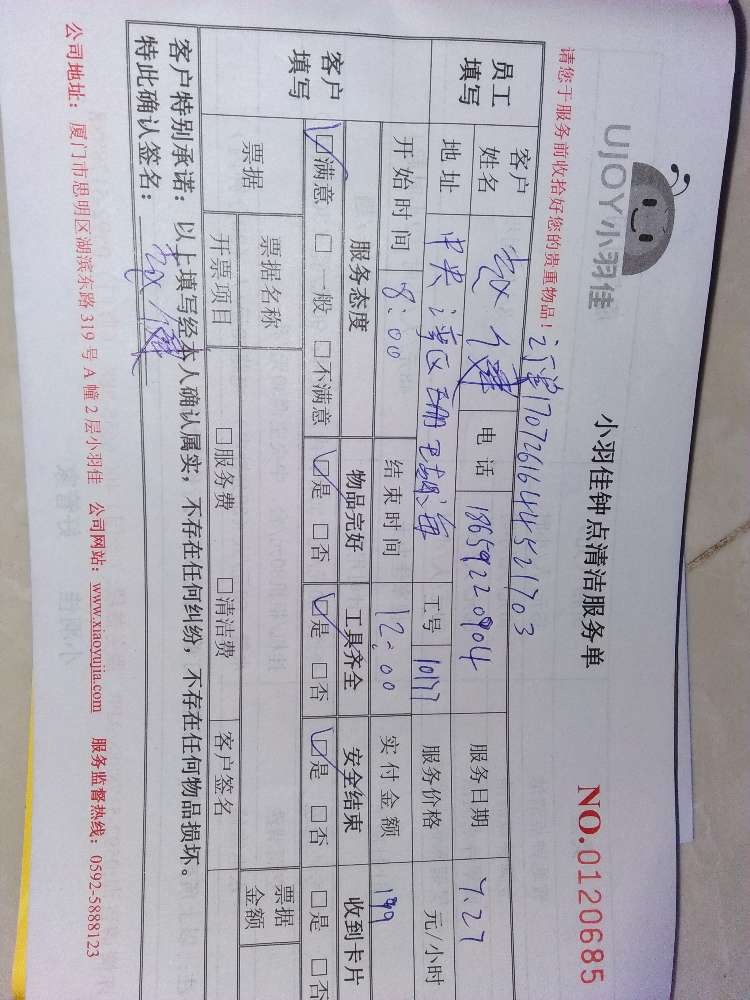 UJOY小羽佳
小羽佳钟点清洁服务单
NO.0120685
请您于服务前收拾好您的贵重物品！
1707261644521703
员工填写 客户姓名 电话 13659220904 服务日期 7.27
地址 中央湾区 工号 10177 服务价格 元/小时
开始时间 8:00 结束时间 12:00 实付金额 199
客户填写 服务态度 物品完好 工具齐全 安全结束 收到卡片
☑满意 □一般 □不满意 ☑是 □否 ☑是 □否 ☑是 □否 □是 □否
票据 票据名称 票据金额
开票项目 □服务费 □清洁费 客户签名
客户特别承诺：以上填写经本人确认属实，不存在任何纠纷，不存在任何物品损坏。
特此确认签名：
公司地址：厦门市思明区湖滨东路319号A幢2层小羽佳 公司网站：www.xiaoyujia.com 服务监督热线：0592-5888123